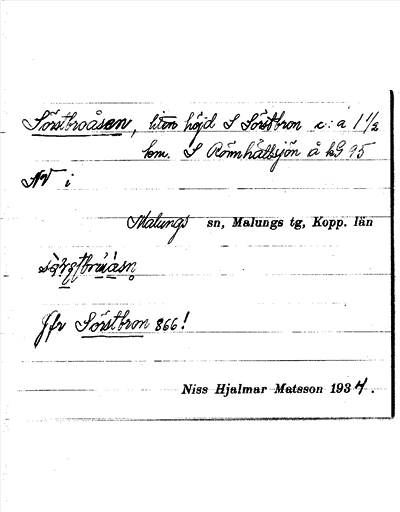 Sörstbroåsen, liten höjd S Sörstbron c:a 1 1/2
km. S Rönnhåttsjön å bl. 95
NV i
Malungs sn, Malungs tg, Kopp. län
Jfr Sörstbron 866!
Niss Hjalmar Matsson 1937.